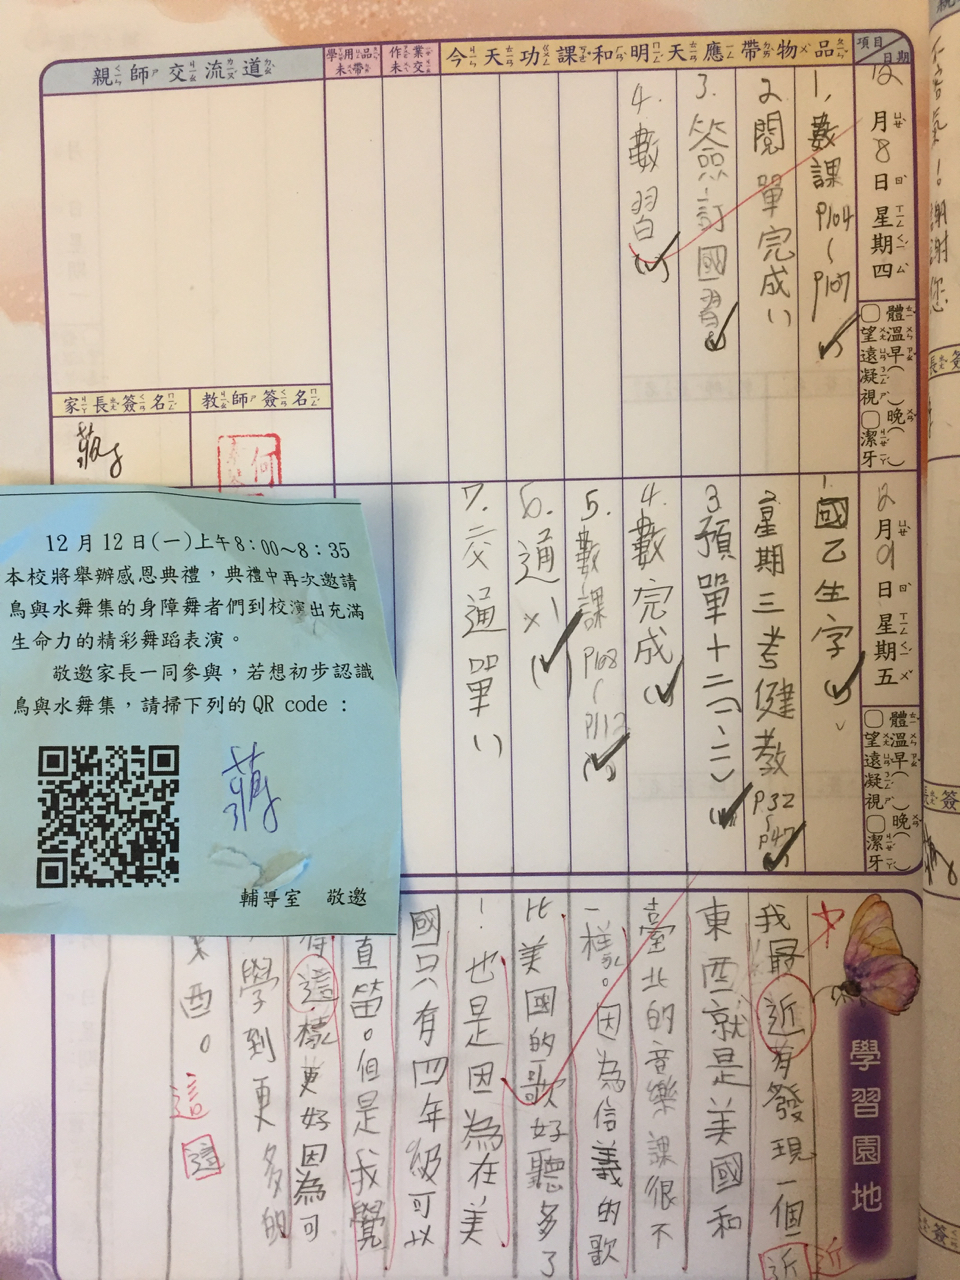 項目
日期
今天功課和明天應帶物品
作業未交
學用品未帶
親師交流道
12月8日星期四
體溫早( 晚( )
望遠凝視
潔牙
1.數課P104~P107
2.閱單完成
3.簽訂國習
4.數習
教師簽名
家長簽名
12月9日星期五
體溫早( 晚( )
望遠凝視
潔牙
1.國乙生字
2.星期三考健教P32~P47
3.預單十二(一、二)
4.數完成
5.數課P108~P112
6.通×1
7.交通單
12月12日(一)上午8:00~8:35
本校將舉辦感恩典禮,典禮中再次邀請
鳥與水舞集的身障舞者們到校演出充滿
生命力的精彩舞蹈表演。
敬邀家長一同參與,若想初步認識
鳥與水舞集,請掃下列的QR code:
輔導室 敬邀
學習園地
我最近有發現一個
東西就是美國和
臺北的音樂課很不
一樣。因為信義的歌
比美國的歌好聽多了
!也是因為在美
國只有四年級可以
直笛。但是我覺
得這樣更好因為可
學到更多的
東西。
這
這
近
近